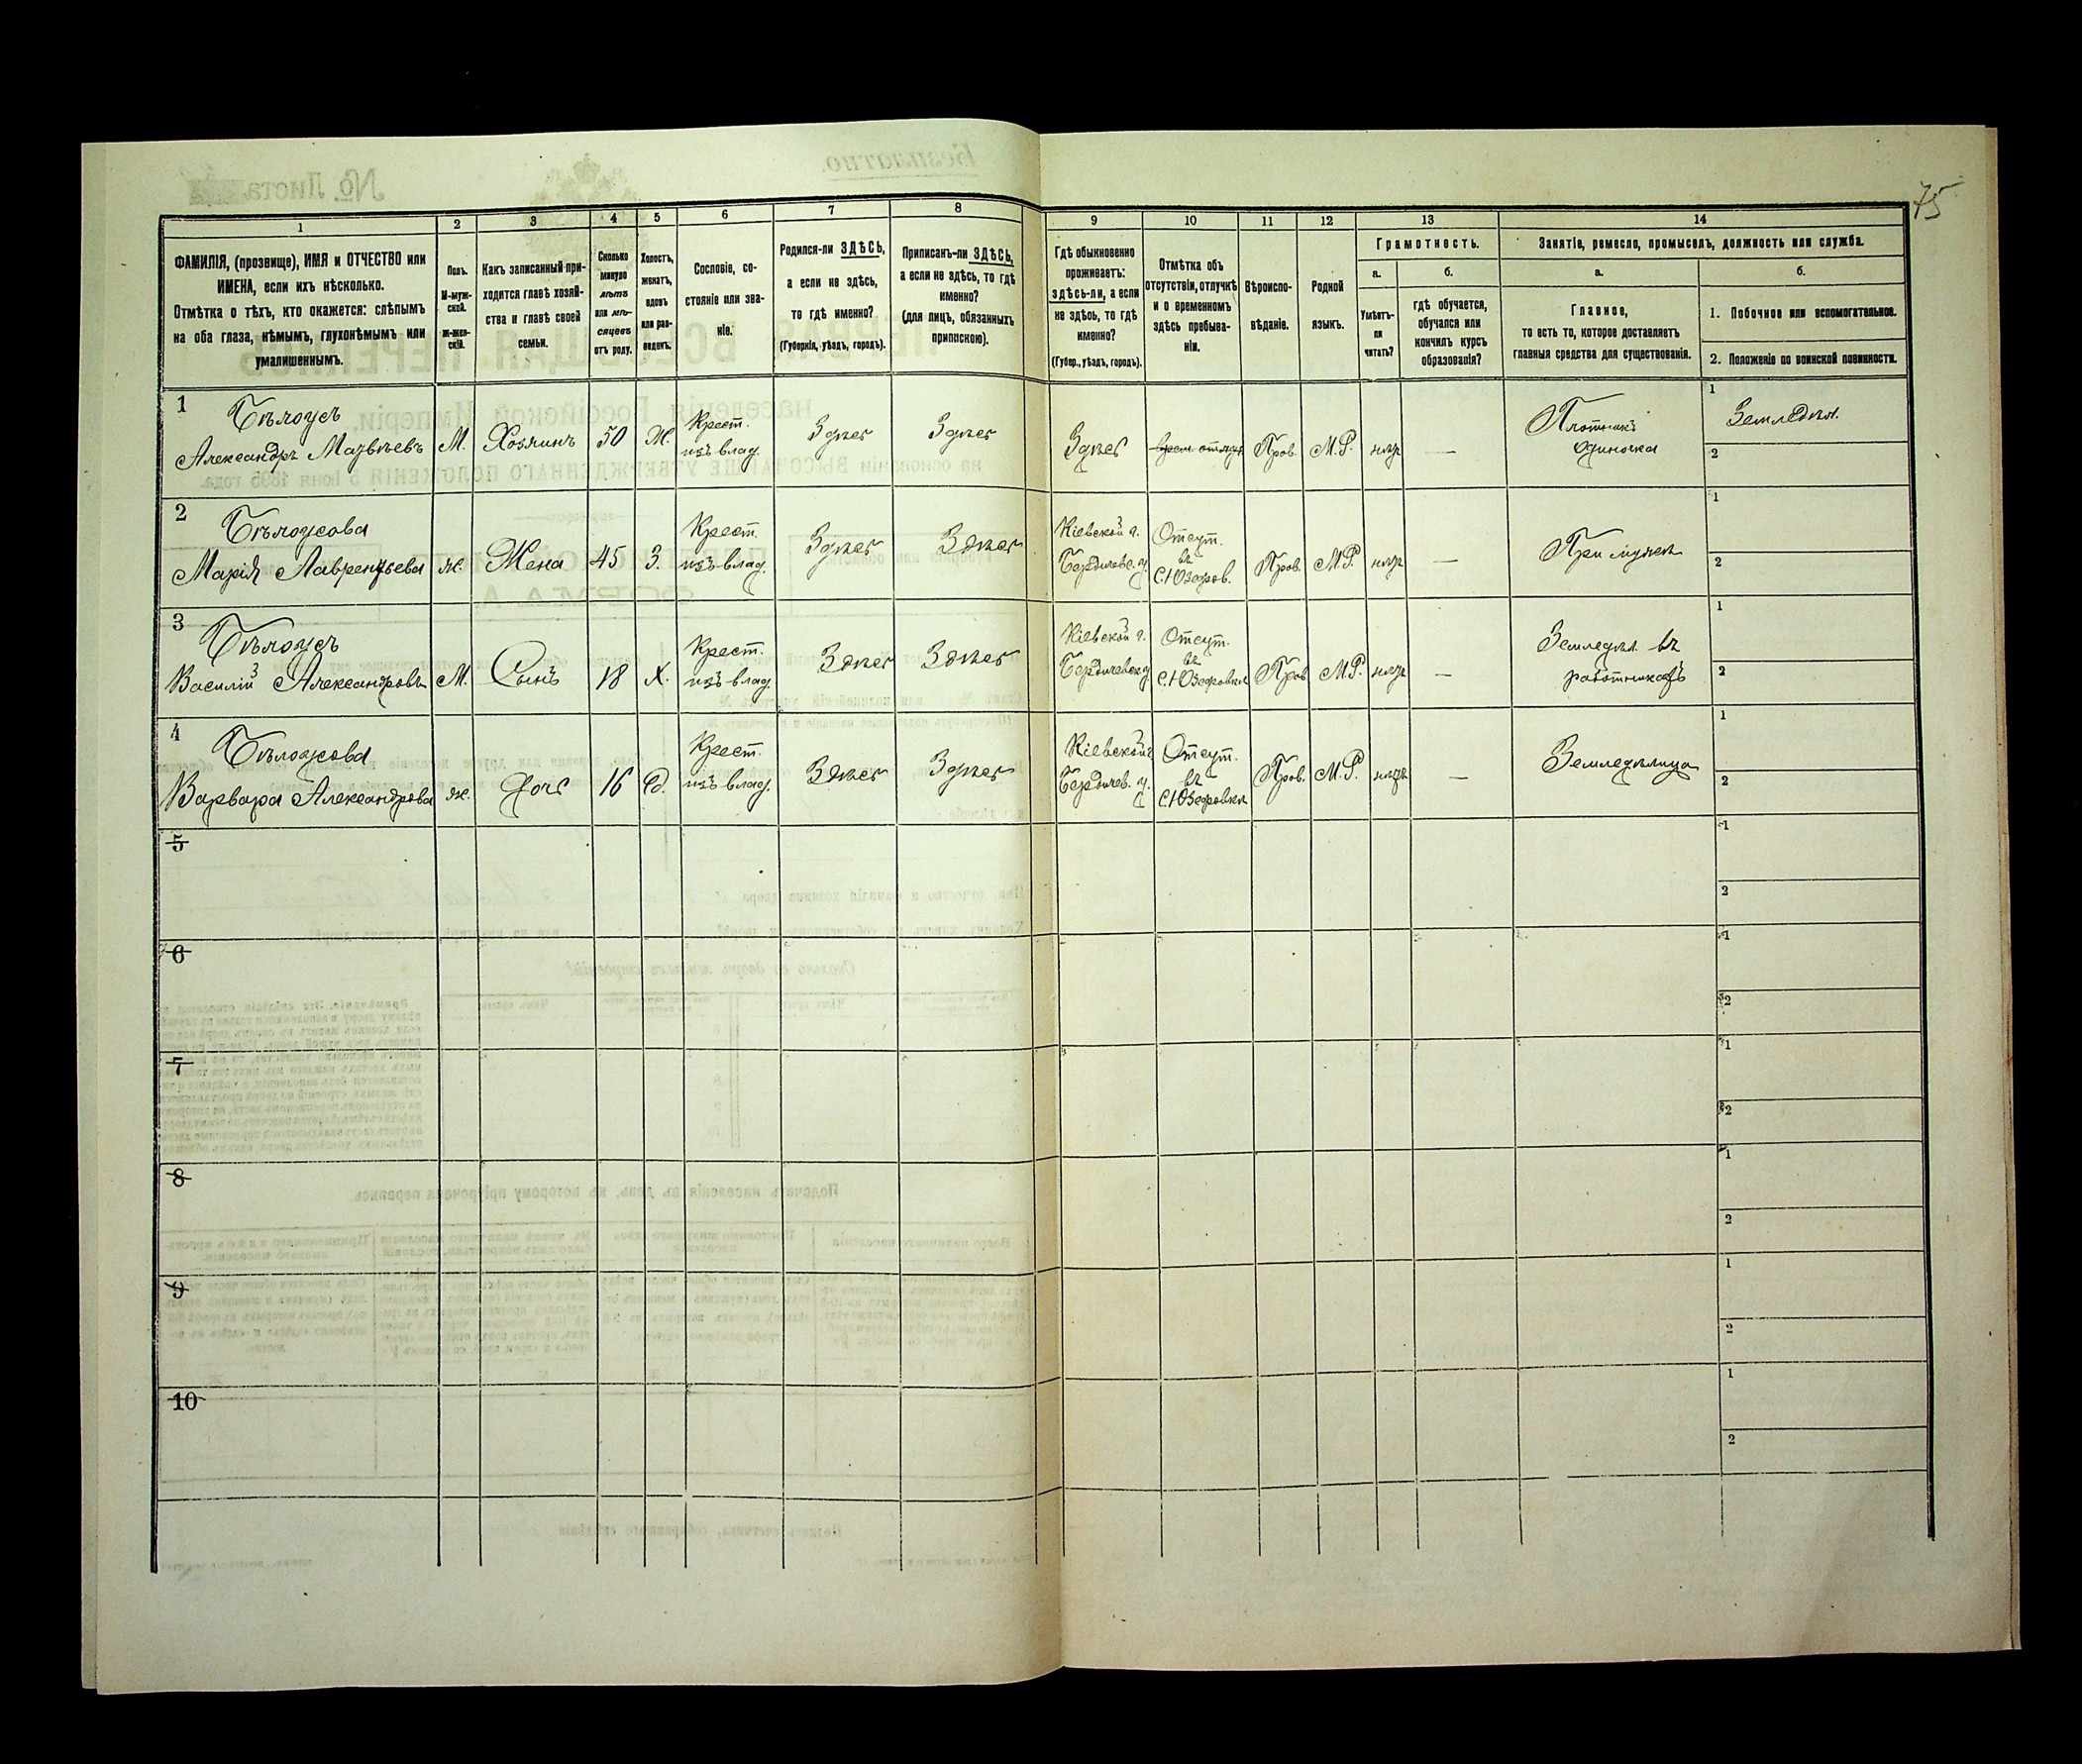 75
1 2 3 4 5 6 7 8 9 10 11 12 13 14
ФАМИЛІЯ, (прозвище), ИМЯ и ОТЧЕСТВО или
ИМЕНА, если ихъ нѣсколько.
Отмѣтка о тѣхъ, кто окажется: слѣпымъ
на оба глаза, нѣмымъ, глухонѣмымъ или
умалишеннымъ.
Полъ.
М-муж-
ской.
Ж-жен-
скій.
Какъ записанный при-
ходится главѣ хозяй-
ства и главѣ своей
семьи.
Сколько
минуло
лѣтъ
или мѣ-
сяцевъ
отъ роду.
Холостъ,
женатъ,
вдовъ
или раз-
веденъ.
Сословіе, со-
стояніе или зва-
ніе.
Родился-ли ЗДѢСЬ,
а если не здѣсь,
то гдѣ именно?
(Губернія, уѣздъ, городъ).
Приписанъ-ли ЗДѢСЬ,
а если не здѣсь, то гдѣ
именно?
(для лицъ, обязанныхъ
припискою).
Гдѣ обыкновенно
проживаетъ:
здѣсь-ли, а если
не здѣсь, то гдѣ
именно?
(Губер., уѣздъ, городъ).
Отмѣтка объ
отсутствіи, отлучкѣ
и о временномъ
здѣсь пребыва-
ніи.
Вѣроиспо-
вѣданіе.
Родной
языкъ.
Грамотность.
а.
Умѣетъ-
ли
читать?
б.
гдѣ обучается,
обучался или
кончилъ курсъ
образованія?
Занятіе, ремесло, промыселъ, должность или служба.
а.
Главное,
то есть то, которое доставляетъ
главныя средства для существованія.
б.
1. Побочное или вспомогательное.
2. Положеніе по воинской повинности.
1
Бѣлоусъ
Александръ Матвѣевъ
М.
Хозяинъ
50
Ж.
Крест.
изъ влад.
Здѣсь
Здѣсь
Здѣсь
Прав.
М.Р.
нѣтъ
—
Плотникъ
одиночка
1
Земледѣл.
2
2
Бѣлоусова
Марія Лаврентьева
ж.
Жена
45
З.
Крест.
изъ влад.
Здѣсь
Здѣсь
Кіевской г.
Бердичевс. у.
Отсут.
въ
с. Юзефов.
Прав.
М.Р.
нѣтъ
—
При мужѣ
1
2
3
Бѣлоусъ
Василій Александровъ
М.
Сынъ
18
Х.
Крест.
изъ влад.
Здѣсь
Здѣсь
Кіевской г.
Бердичевск у.
Отсут.
въ
с. Юзефовкѣ
Прав.
М.Р.
нѣтъ
—
Земледѣл. въ
работникахъ
1
2
4
Бѣлоусова
Варвара Александрова
ж.
Дочь
16
Д.
Крест.
изъ влад.
Здѣсь
Здѣсь
Кіевской г.
Бердичев. у.
Отсут.
въ
с. Юзефовкѣ
Прав.
М.Р.
нѣтъ
—
Земледѣлица
1
2
5
1
2
6
1
2
7
1
2
8
1
2
9
1
2
10
1
2